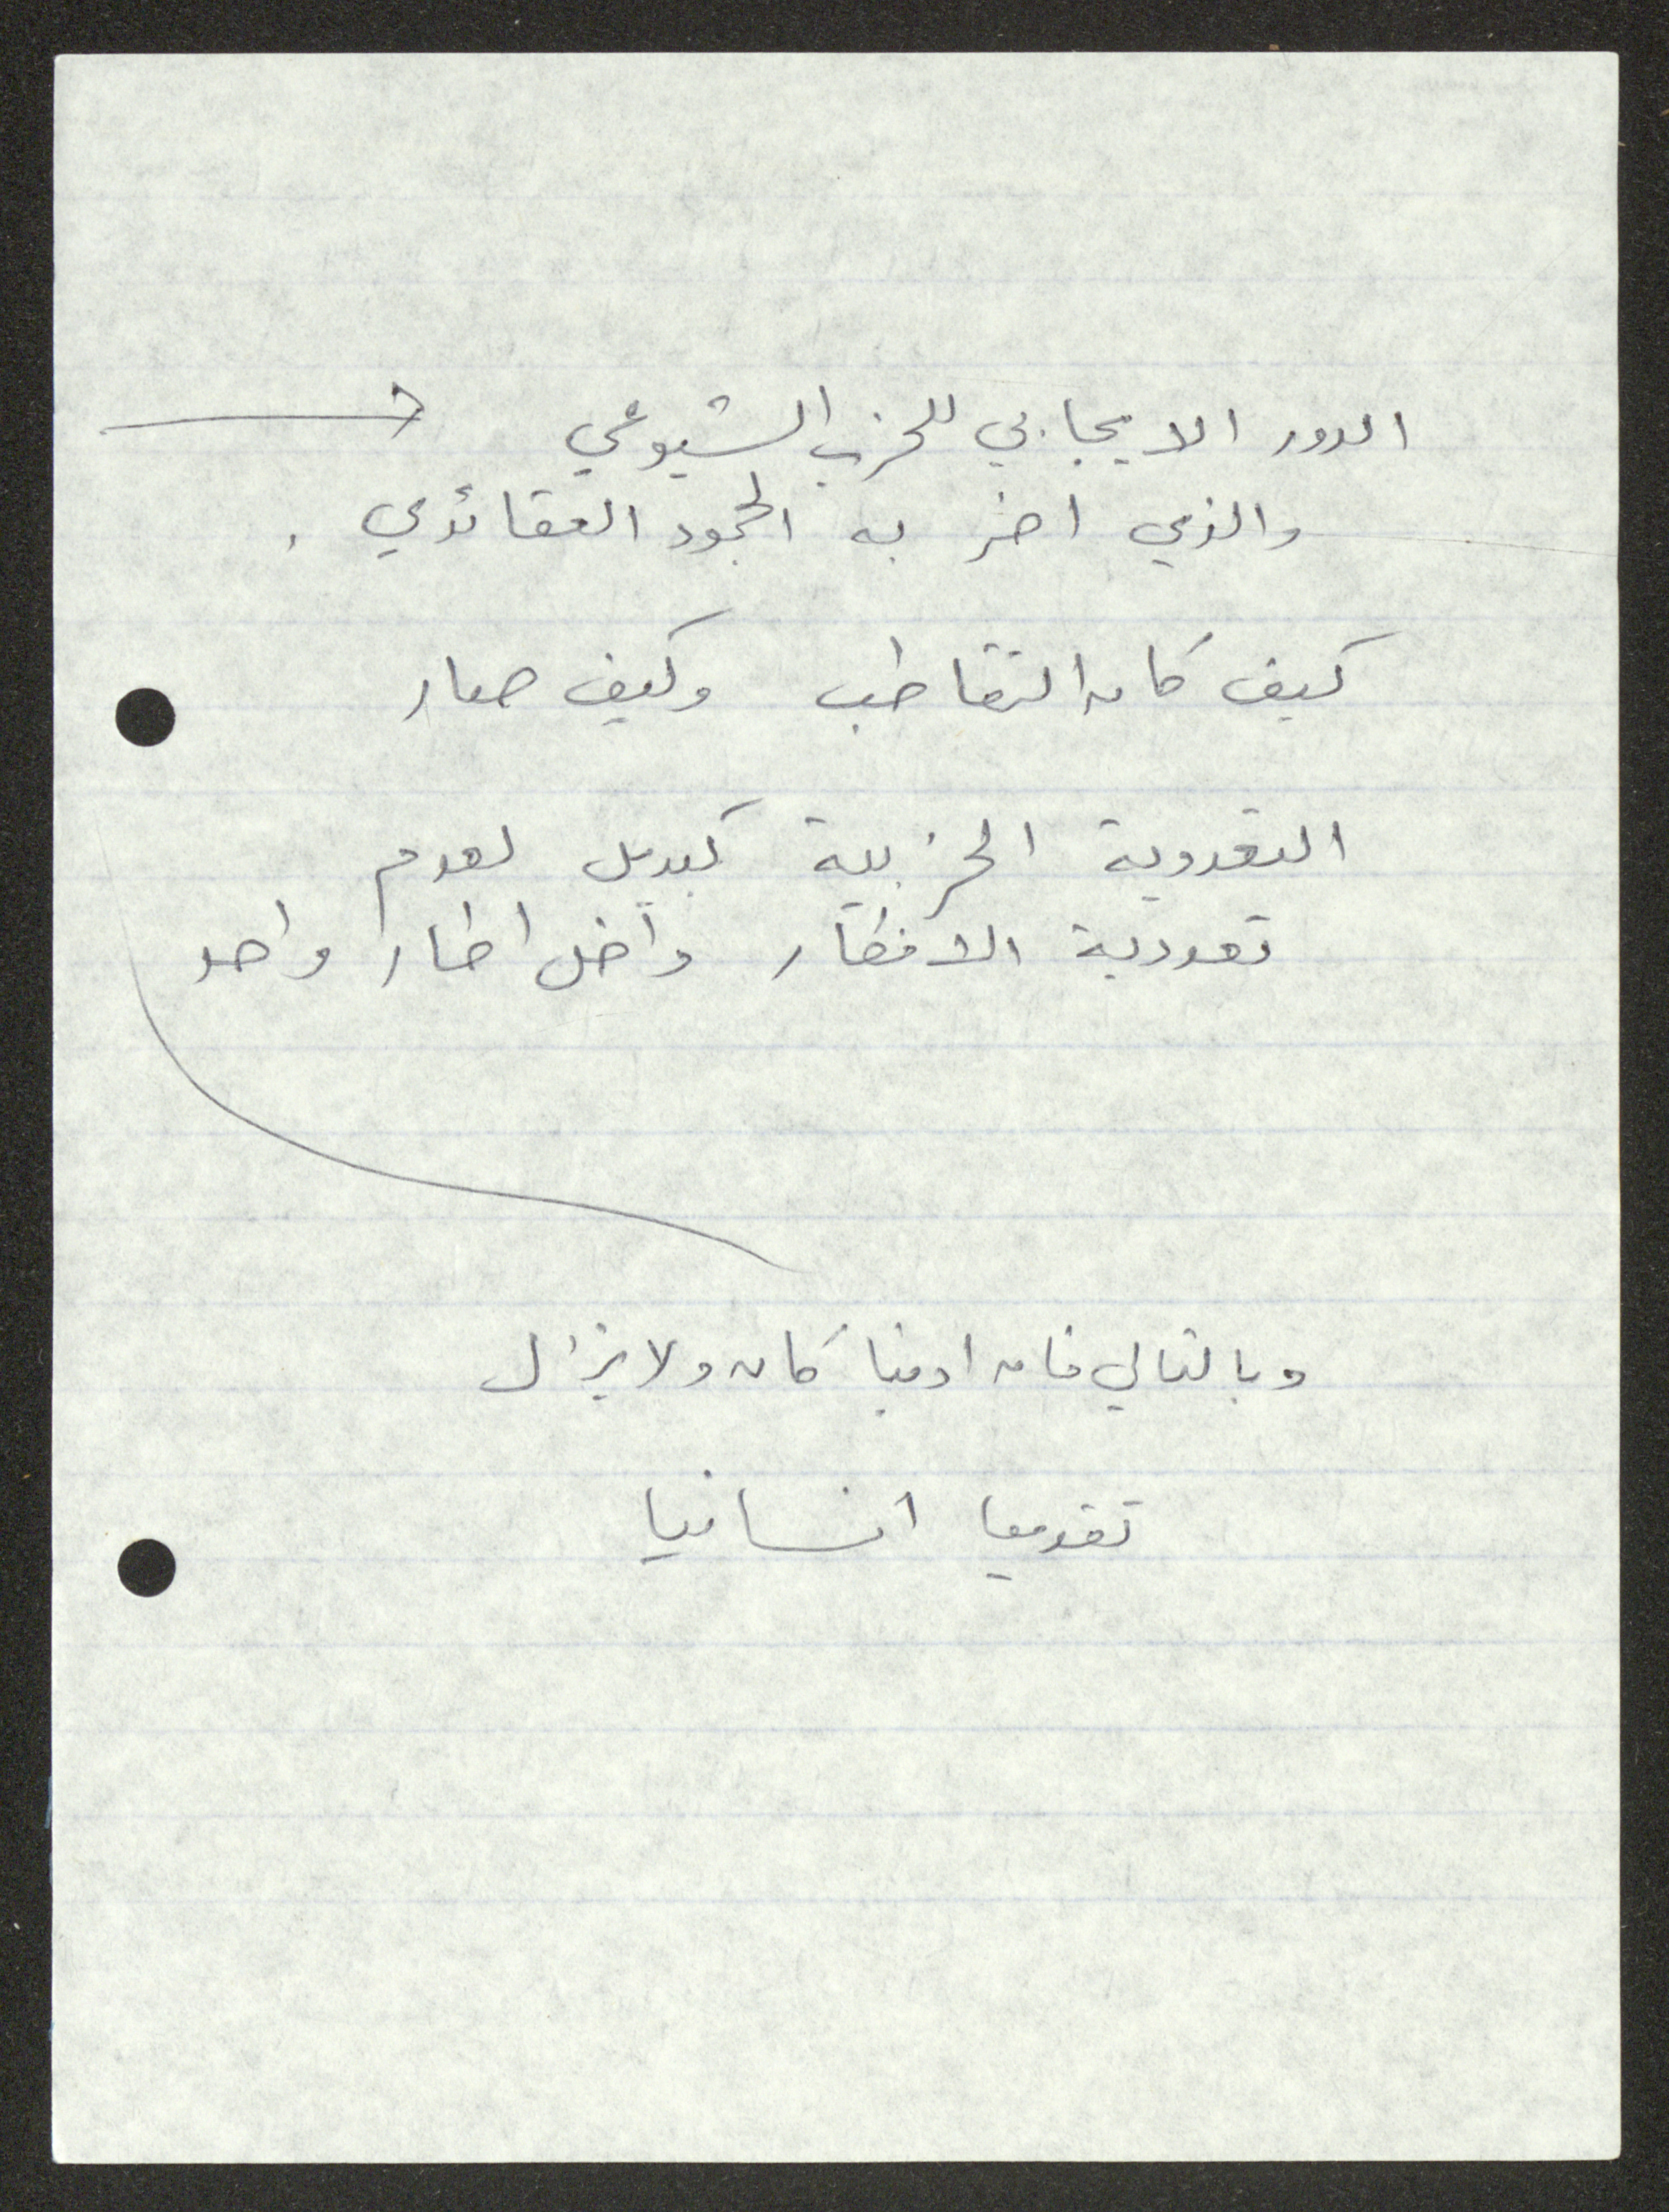 الدور الايجابي للحزب الشيوعي
والذي اضر به الجمود العقائدي .
كيف كان التقاطب وكيف صار
التعددية الحزبية كبديل لعدم
تعددية الافكار داخل اطار واحد
وبالتالي فان ادبنا كان ولا يزال
تقدميا انسانيا